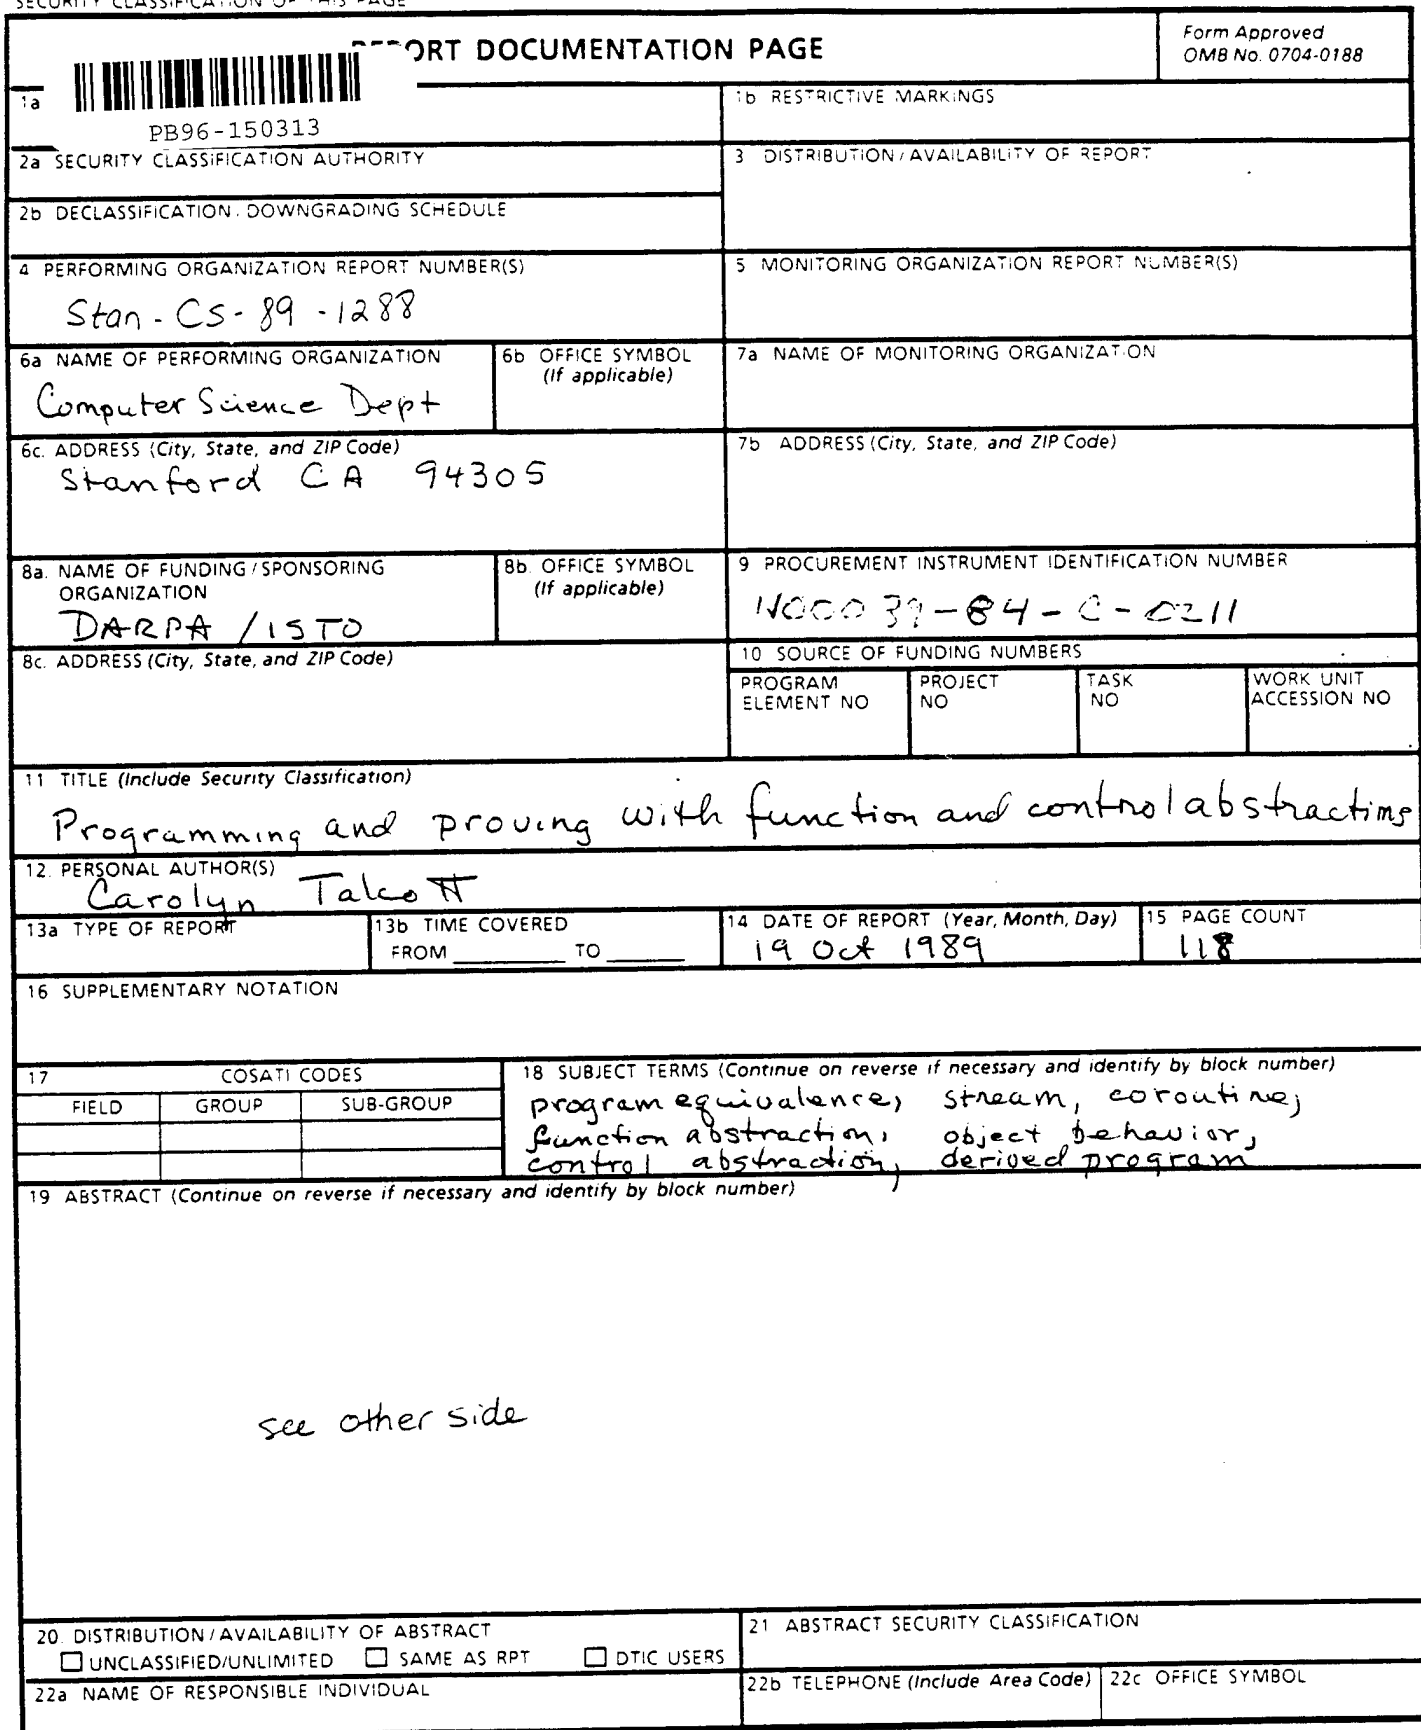 SECURITY CLASSIFICATION OF THIS PAGE
REPORT DOCUMENTATION PAGE
Form Approved
OMB No. 0704-0188
1a
PB96-150313
1b RESTRICTIVE MARKINGS
2a SECURITY CLASSIFICATION AUTHORITY
3 DISTRIBUTION / AVAILABILITY OF REPORT
2b DECLASSIFICATION / DOWNGRADING SCHEDULE
4 PERFORMING ORGANIZATION REPORT NUMBER(S)
Stan - CS - 89 - 1288
5 MONITORING ORGANIZATION REPORT NUMBER(S)
6a NAME OF PERFORMING ORGANIZATION
Computer Science Dept
6b OFFICE SYMBOL
(If applicable)
7a NAME OF MONITORING ORGANIZATION
6c. ADDRESS (City, State, and ZIP Code)
Stanford CA 94305
7b ADDRESS (City, State, and ZIP Code)
8a. NAME OF FUNDING / SPONSORING
ORGANIZATION
DARPA / ISTO
8b. OFFICE SYMBOL
(If applicable)
9 PROCUREMENT INSTRUMENT IDENTIFICATION NUMBER
N00039-84-C-0211
8c. ADDRESS (City, State, and ZIP Code)
10 SOURCE OF FUNDING NUMBERS
PROGRAM
ELEMENT NO
PROJECT
NO
TASK
NO
WORK UNIT
ACCESSION NO
11 TITLE (Include Security Classification)
Programming and proving with function and control abstractions
12. PERSONAL AUTHOR(S)
Carolyn Talcott
13a TYPE OF REPORT
13b TIME COVERED
FROM ________ TO ________
14 DATE OF REPORT (Year, Month, Day)
19 Oct 1989
15 PAGE COUNT
118
16 SUPPLEMENTARY NOTATION
17 COSATI CODES
FIELD GROUP SUB-GROUP
18 SUBJECT TERMS (Continue on reverse if necessary and identify by block number)
program equivalence, stream, coroutine,
function abstraction, object behavior,
control abstraction, derived program
19 ABSTRACT (Continue on reverse if necessary and identify by block number)
see other side
20. DISTRIBUTION / AVAILABILITY OF ABSTRACT
☐ UNCLASSIFIED/UNLIMITED ☐ SAME AS RPT ☐ DTIC USERS
21 ABSTRACT SECURITY CLASSIFICATION
22a NAME OF RESPONSIBLE INDIVIDUAL
22b TELEPHONE (Include Area Code)
22c OFFICE SYMBOL